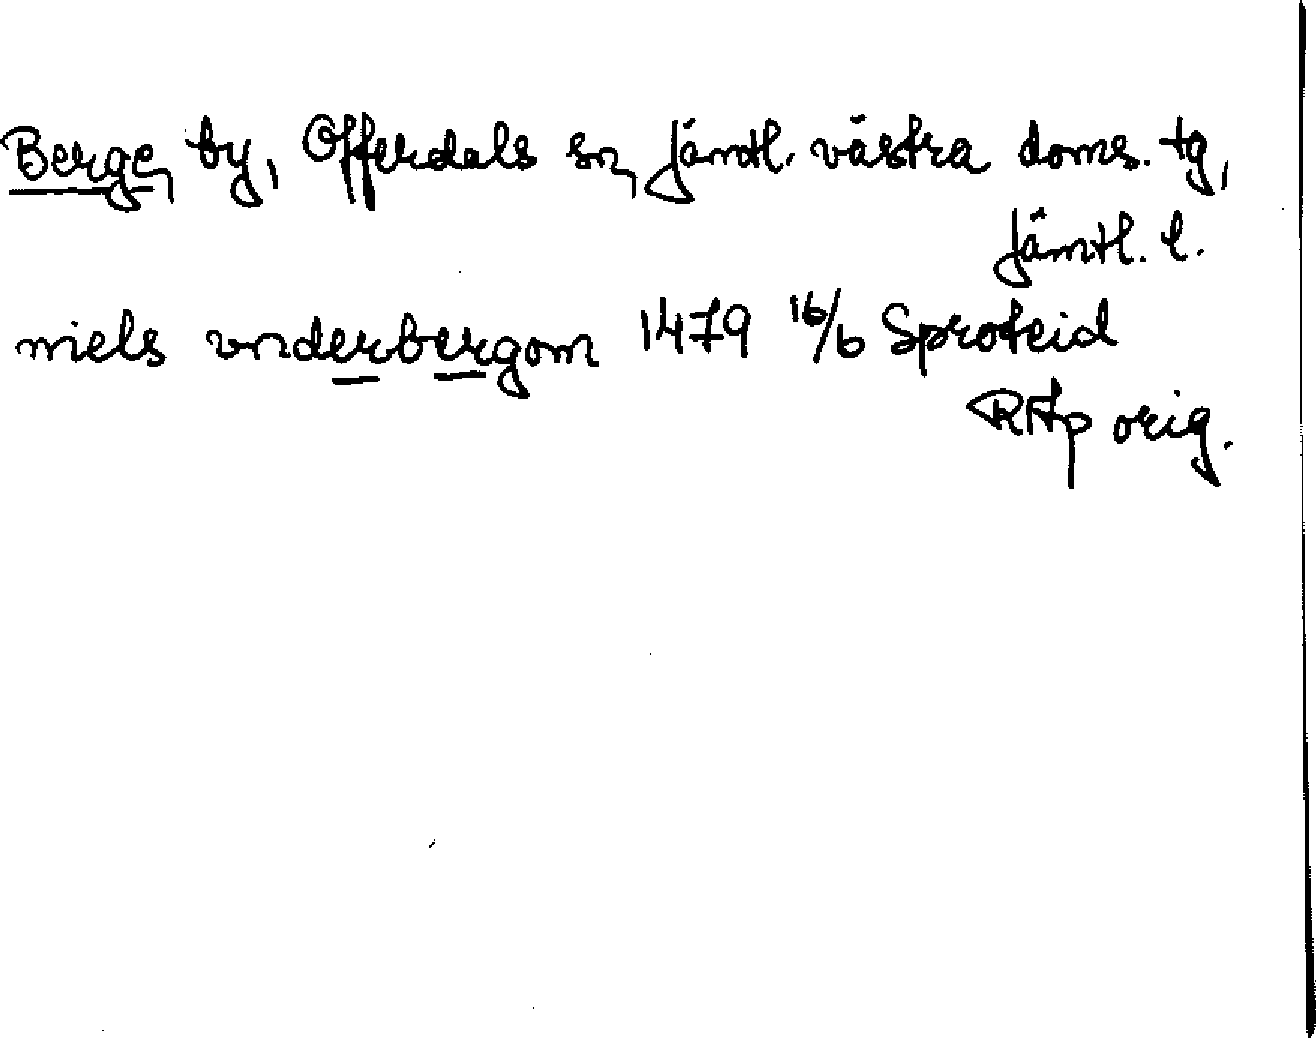 Berge, by, Offerdals sn, Jämtl. västra doms. tg,
Jämtl. l.
niels vnderbergom 1479 16/6 Sproteid
RAp orig.